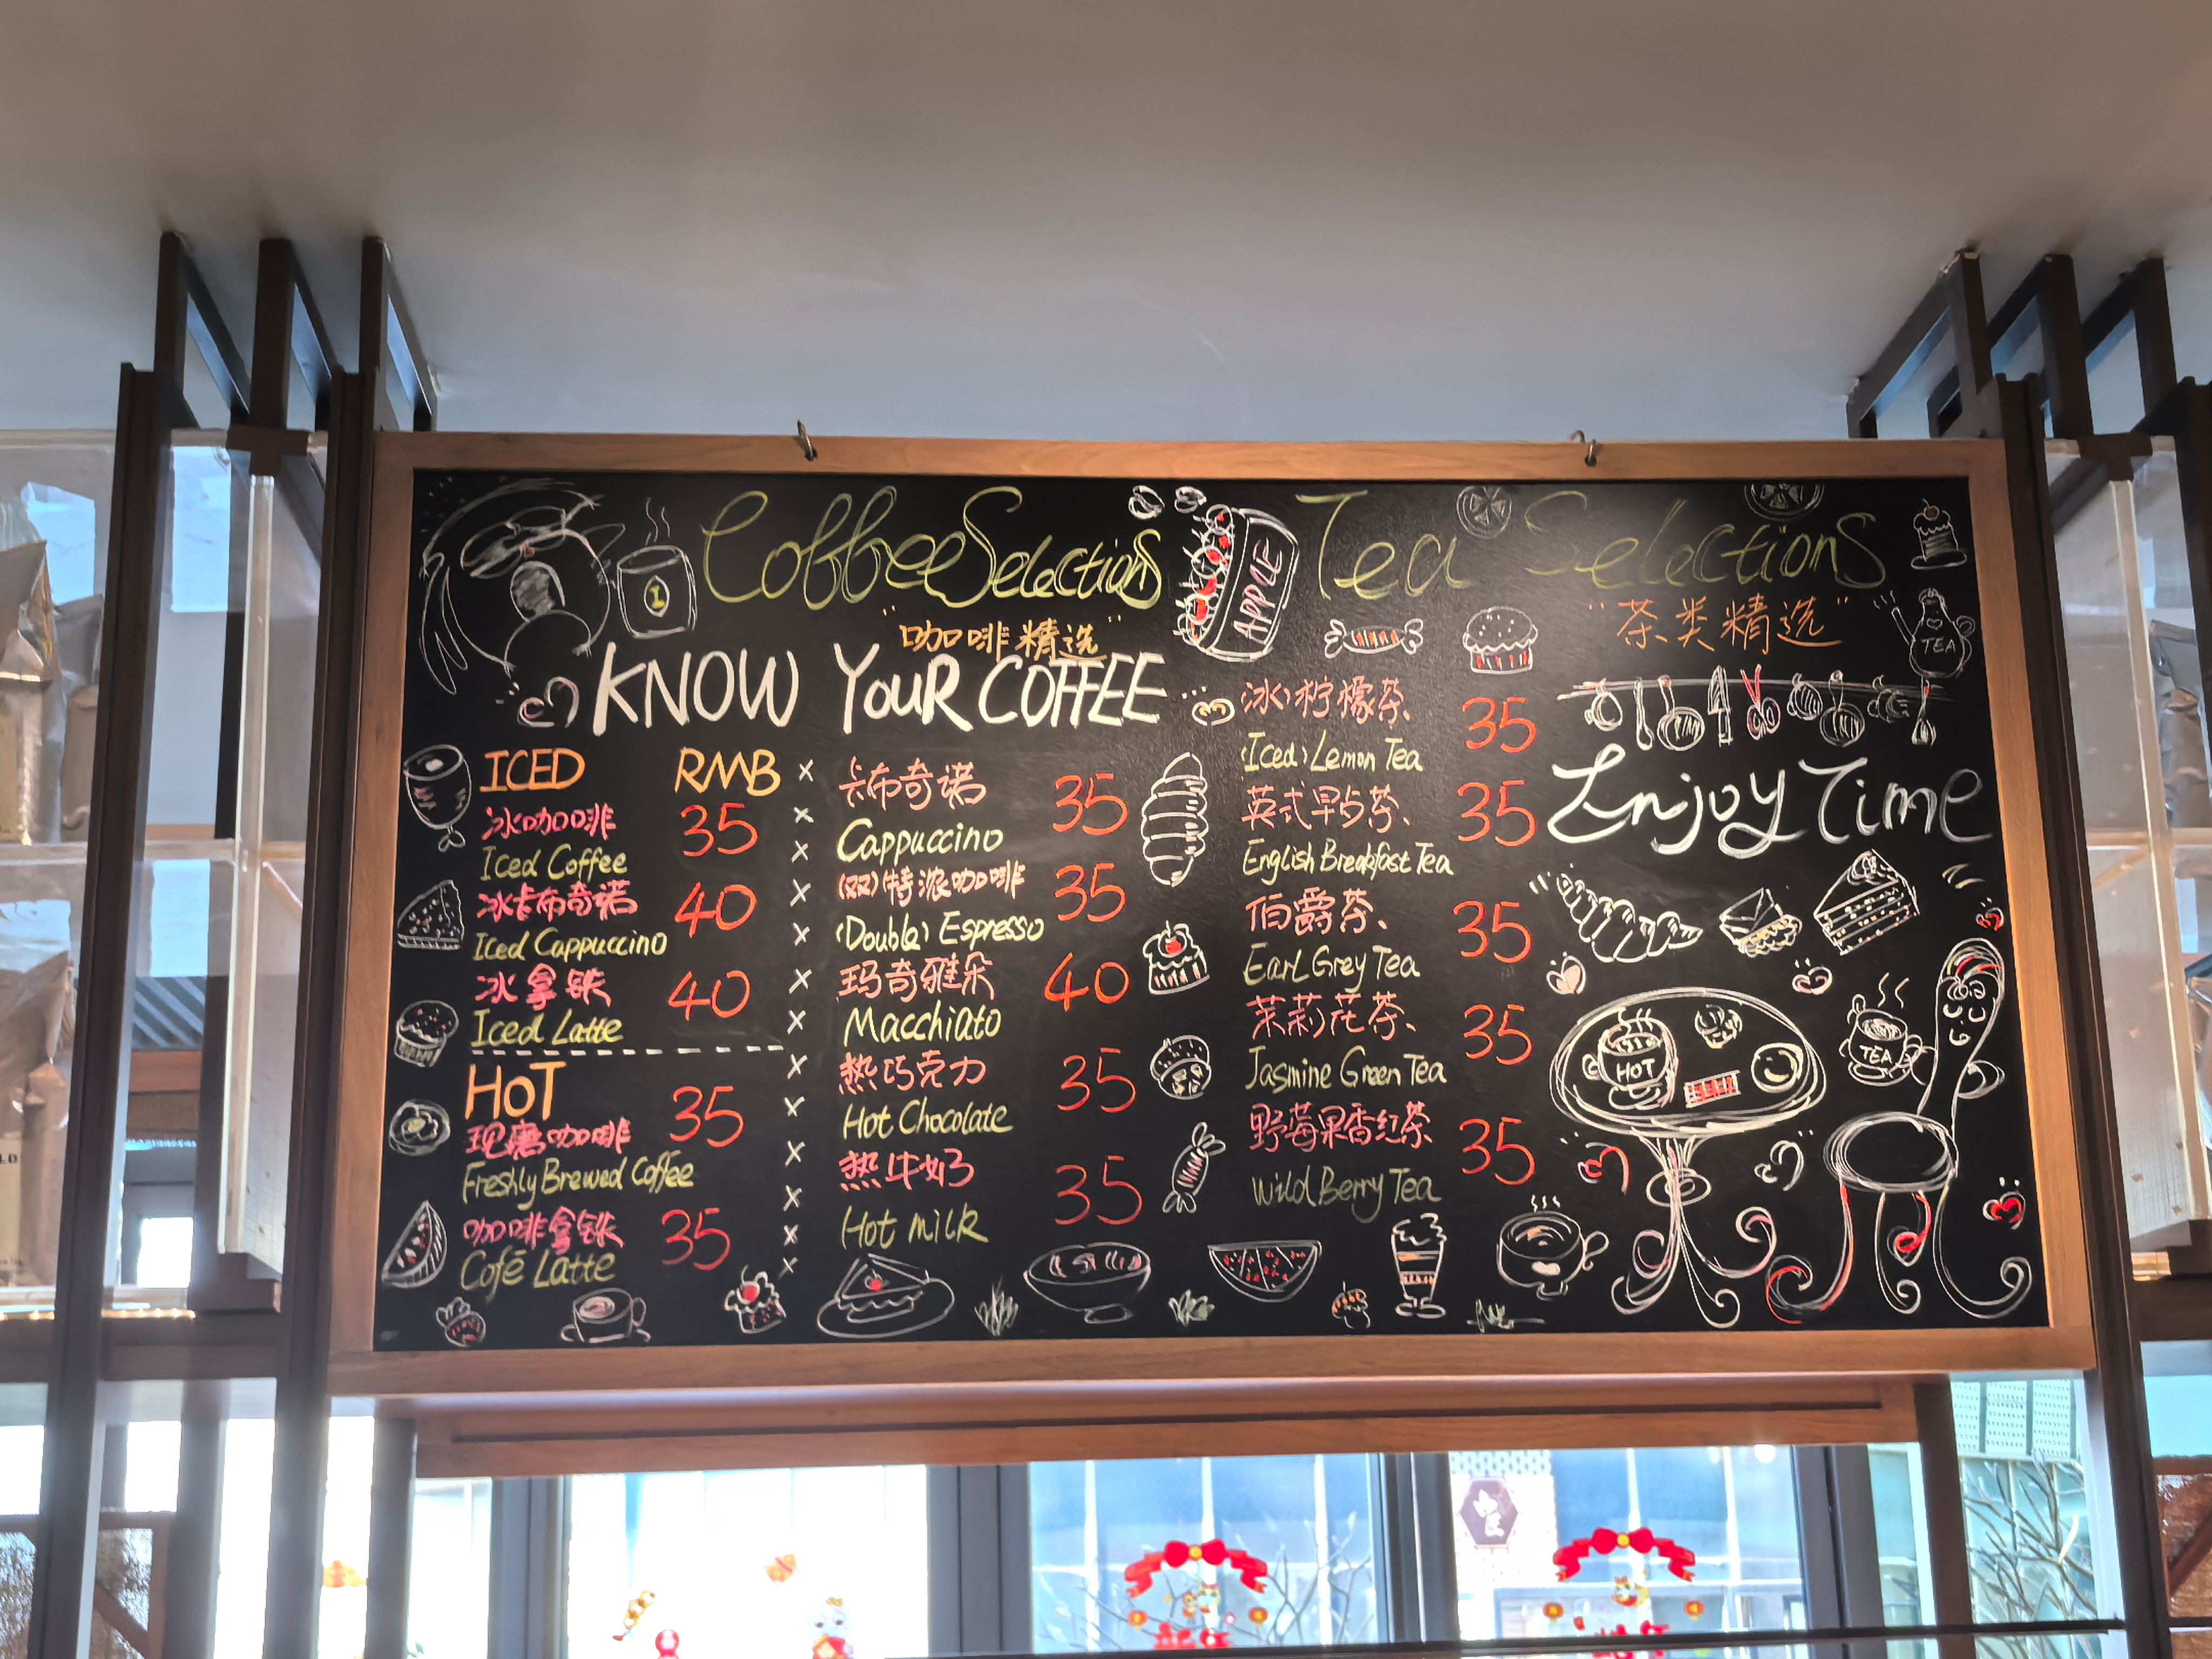 Coffee Selections
"咖啡精选"
KNOW YOUR COFFEE
ICED RMB
冰咖啡 35
Iced Coffee
冰卡布奇诺 40
Iced Cappuccino
冰拿铁 40
Iced Latte
HOT
现磨咖啡 35
Freshly Brewed Coffee
咖啡拿铁 35
Café Latte
卡布奇诺 35
Cappuccino
(双)特浓咖啡 35
(Double) Espresso
玛奇雅朵 40
Macchiato
热巧克力 35
Hot Chocolate
热牛奶 35
Hot milk
APPLE
Tea Selections
"茶类精选"
TEA
(冰)柠檬茶 35
(Iced) Lemon Tea
英式早点茶、 35
English Breakfast Tea
伯爵茶、 35
Earl Grey Tea
茉莉花茶、 35
Jasmine Green Tea
野莓果香红茶 35
Wild Berry Tea
Enjoy Time
HOT
TEA